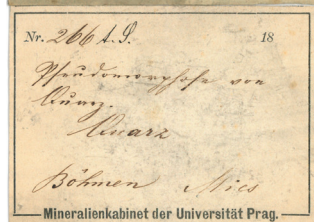 Nr. 266 t. S. 18
Pseudomorphose von
Quarz.
Quarz
Böhmen Mies
Mineralienkabinet der Universität Prag.